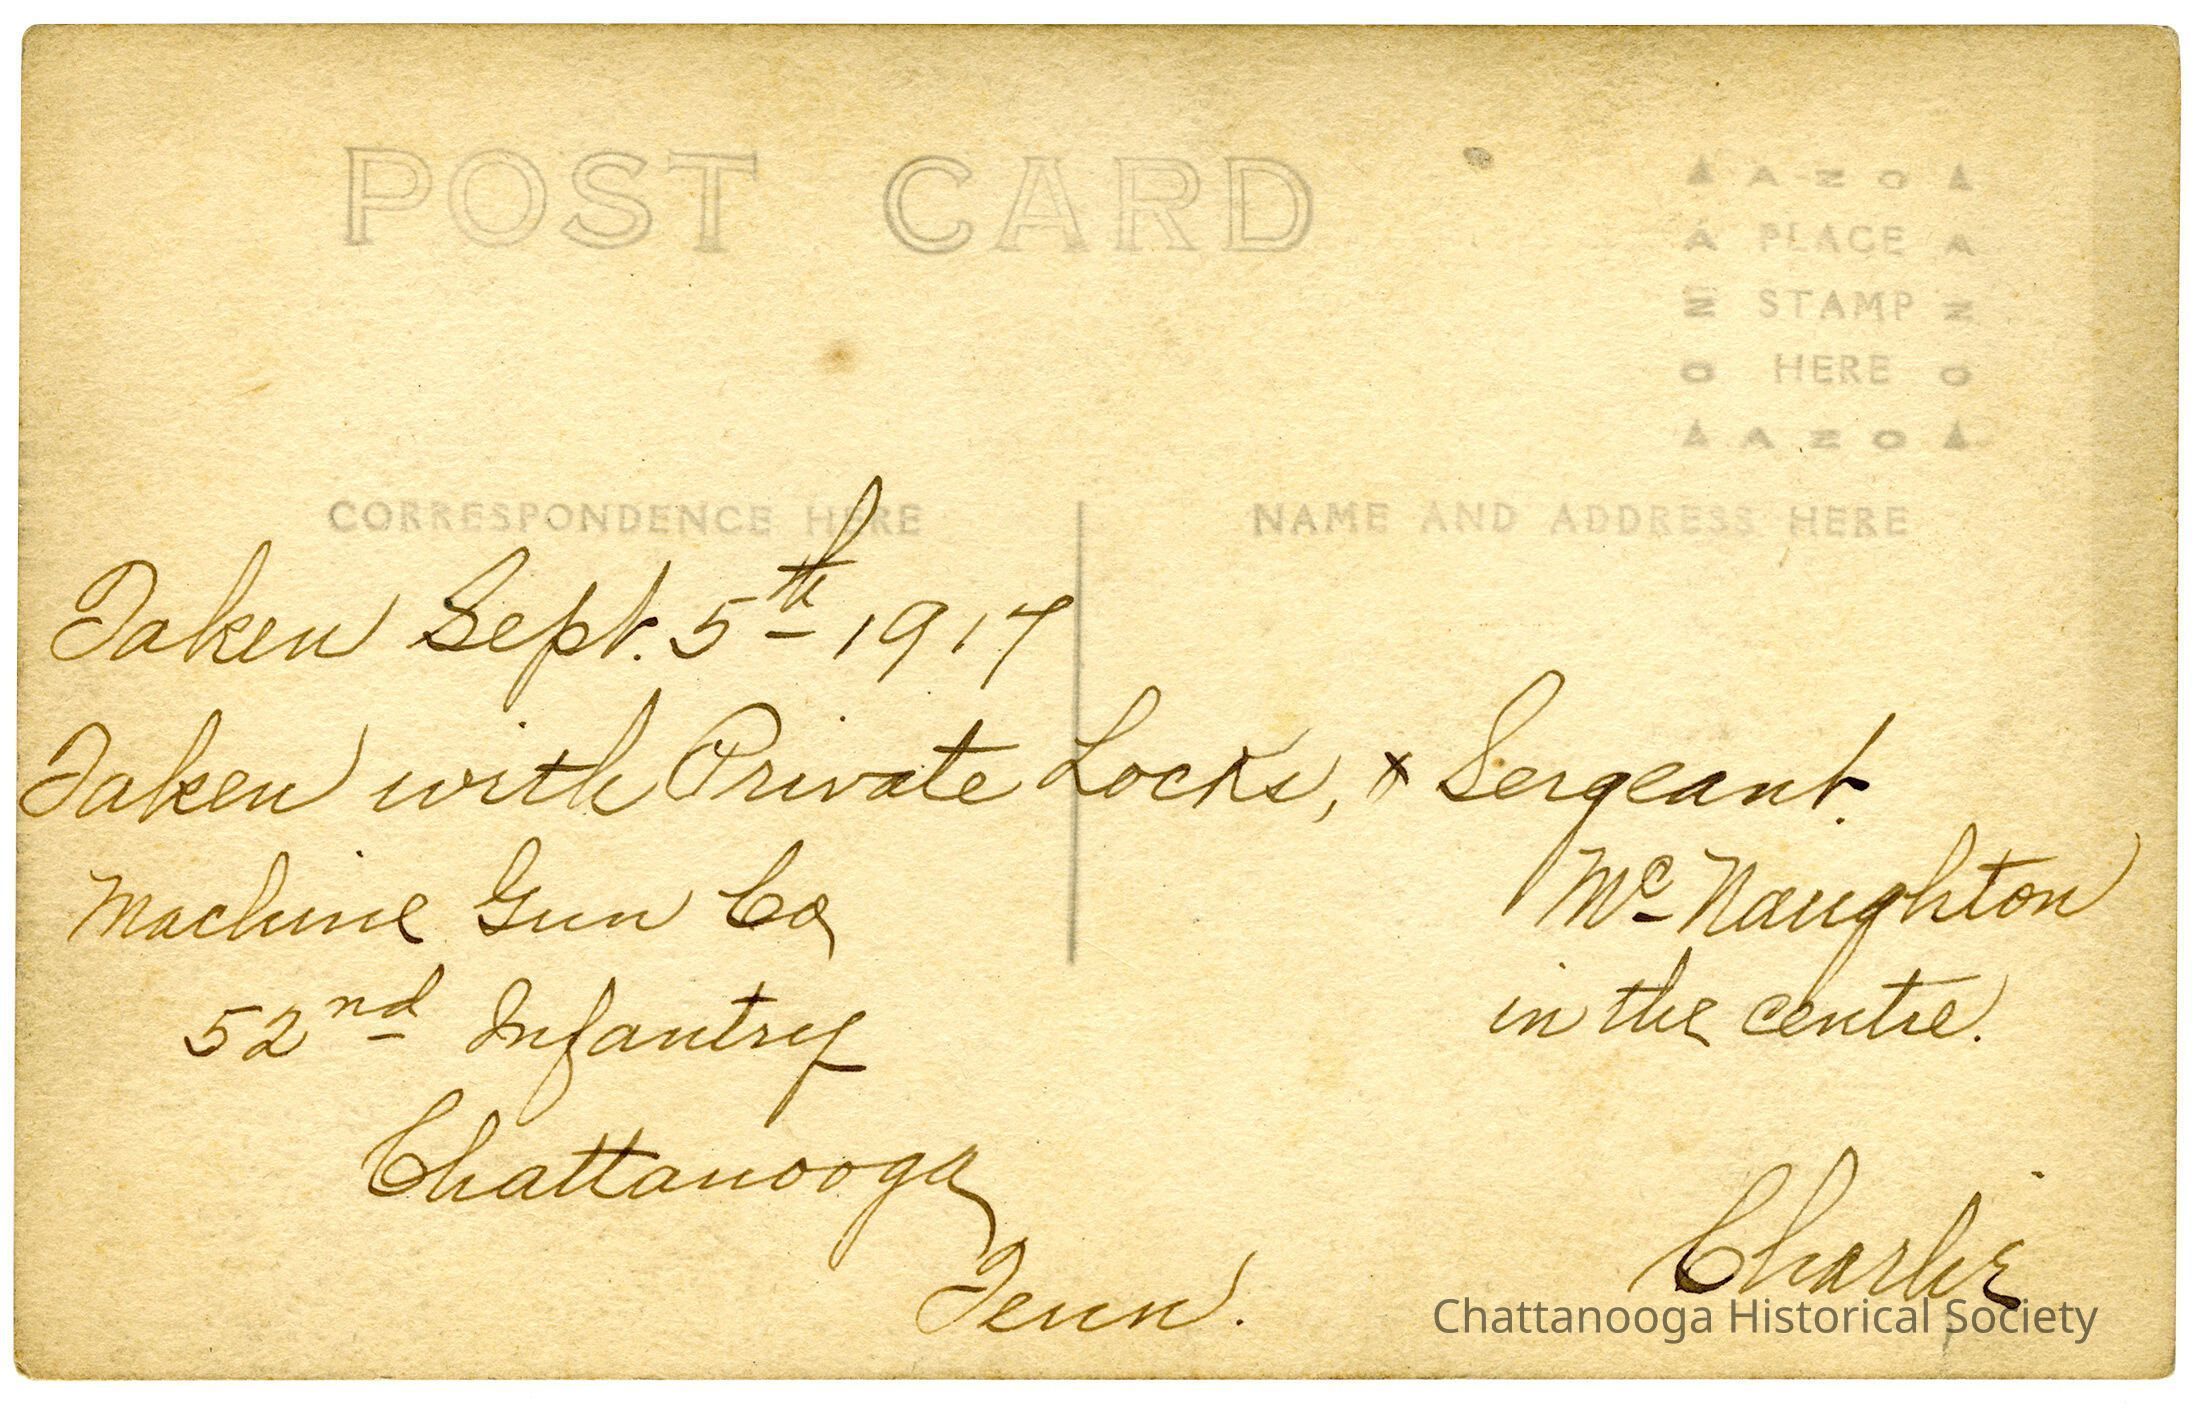 POST CARD
AZO
A PLACE A
Z STAMP Z
O HERE O
AZO
CORRESPONDENCE HERE
NAME AND ADDRESS HERE
Taken Sept. 5th 1917
Taken with Private Locks, & Sergeant.
McNaughton
in the centre.
Machine Gun Co
52nd Infantry
Chattanooga
Tenn.
Charlie
Chattanooga Historical Society